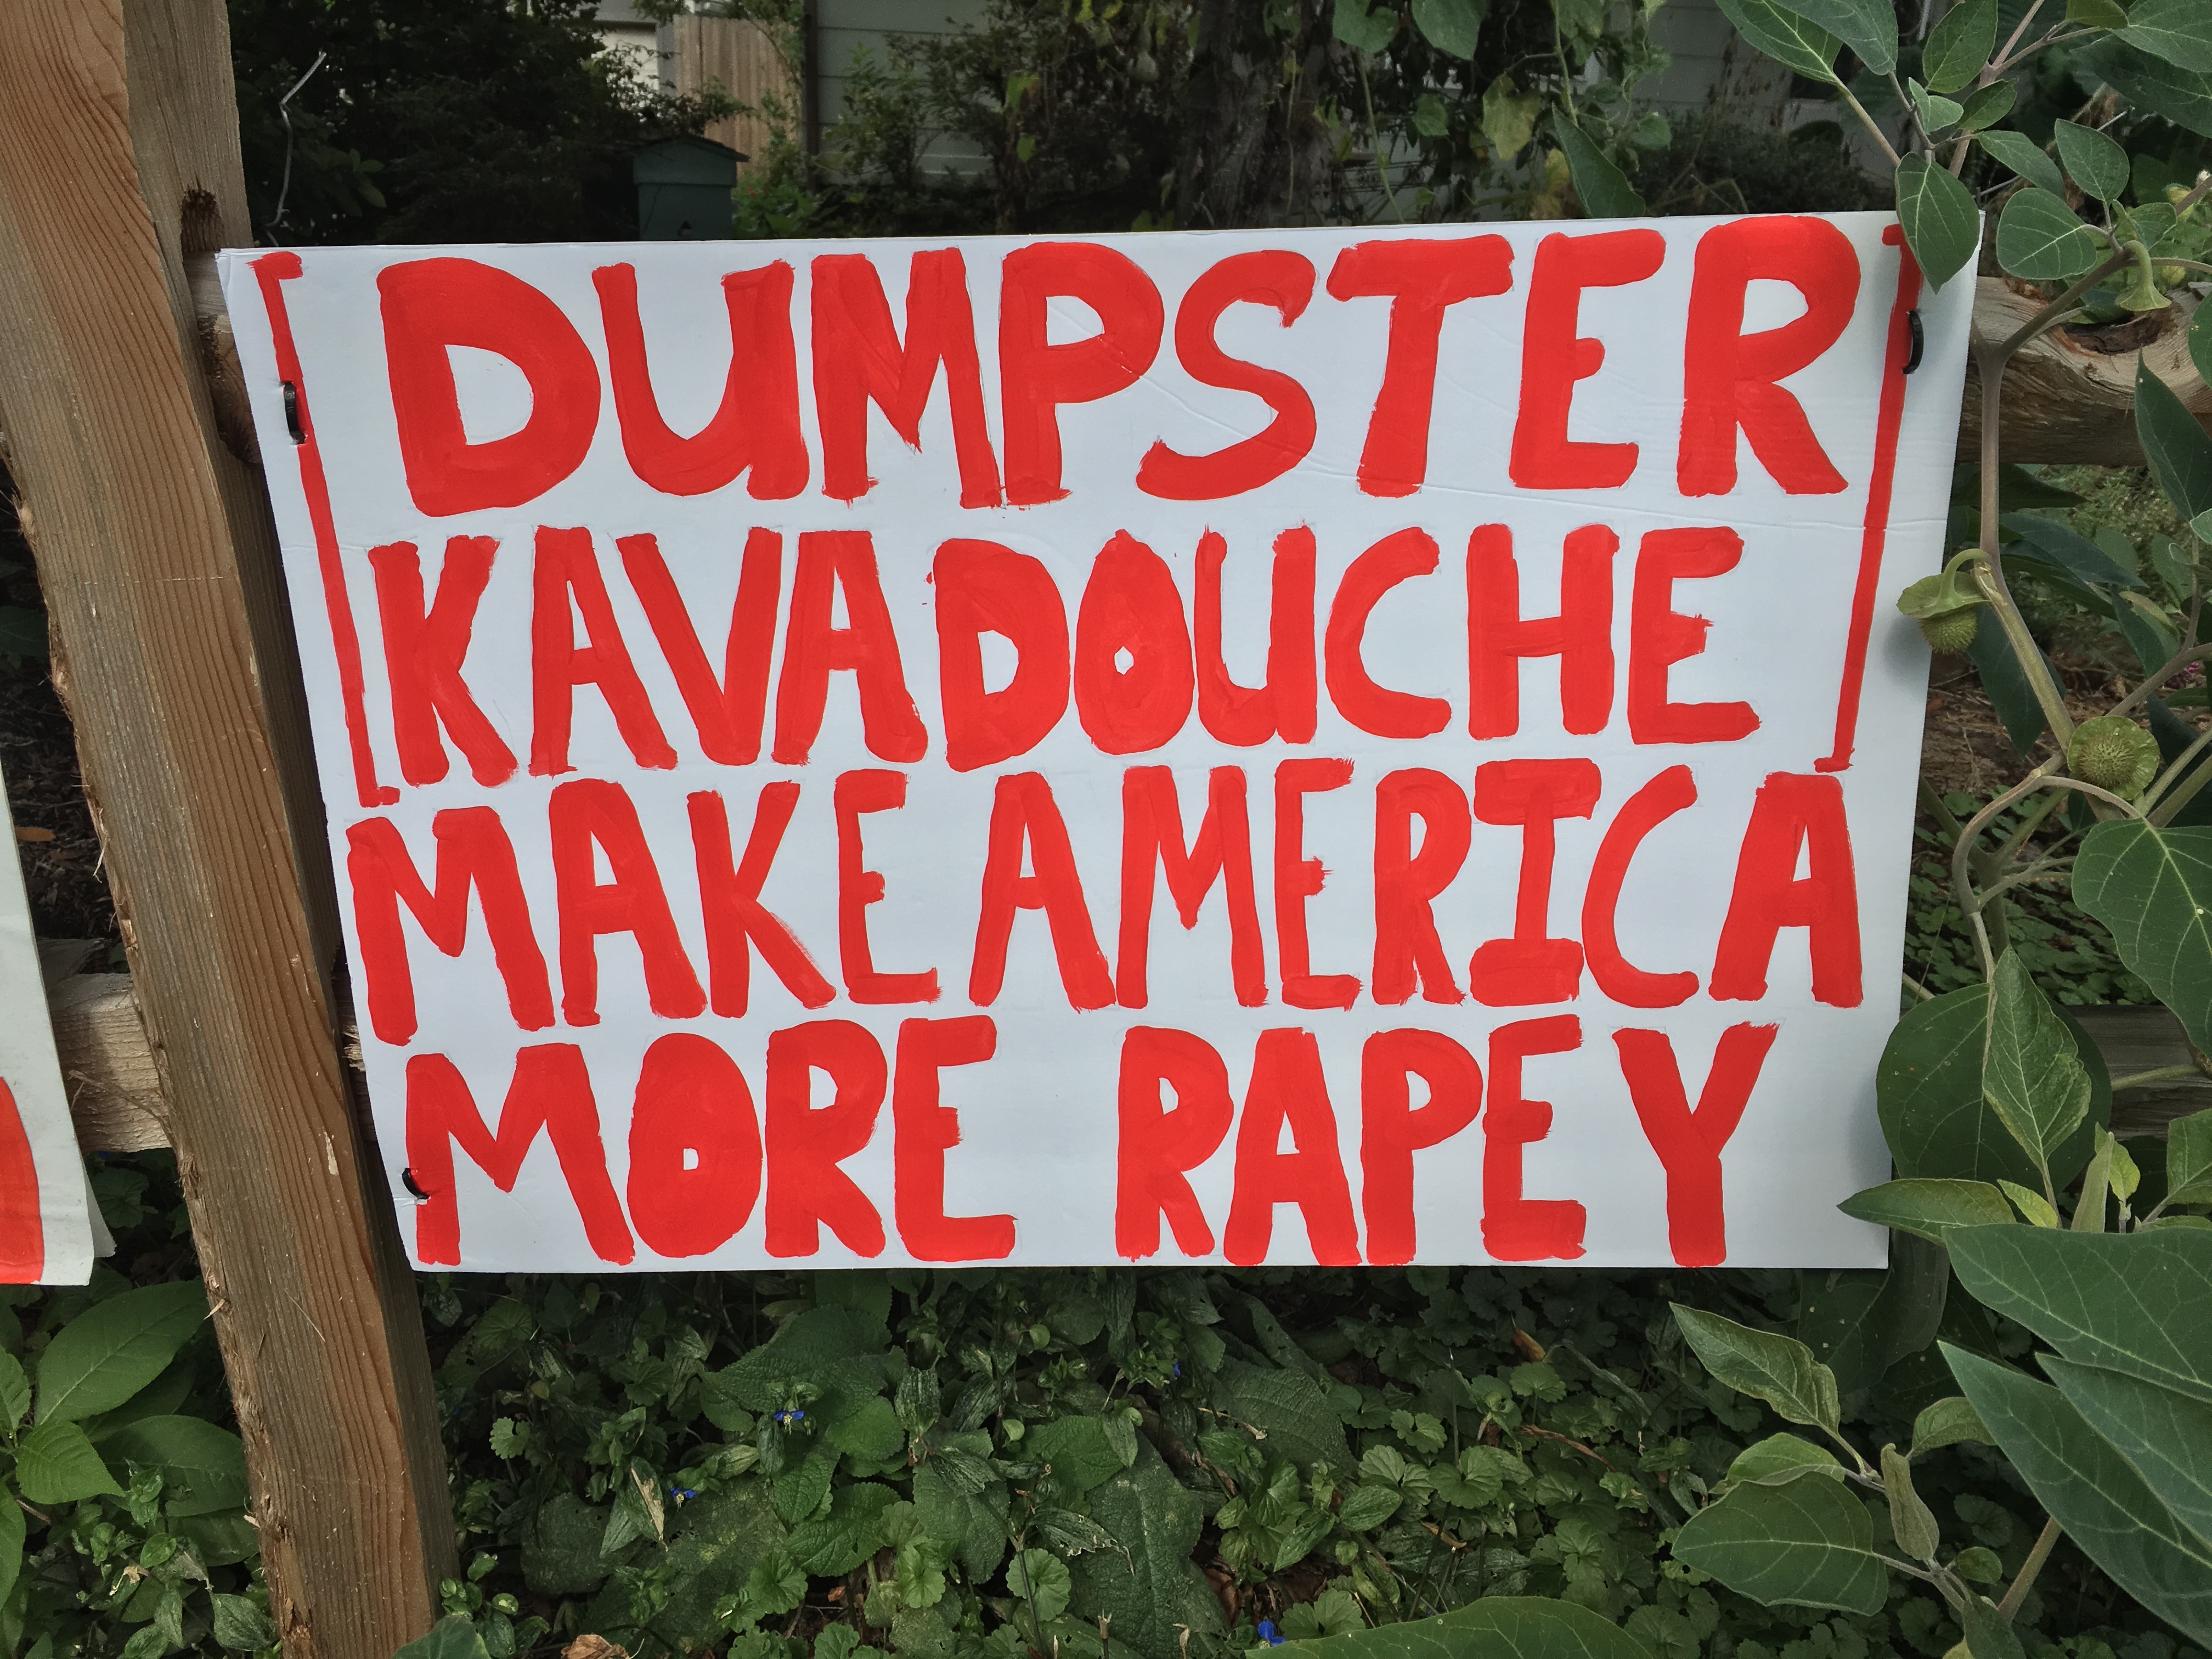 [DUMPSTER
KAVADOUCHE]
MAKE AMERICA
MORE RAPEY